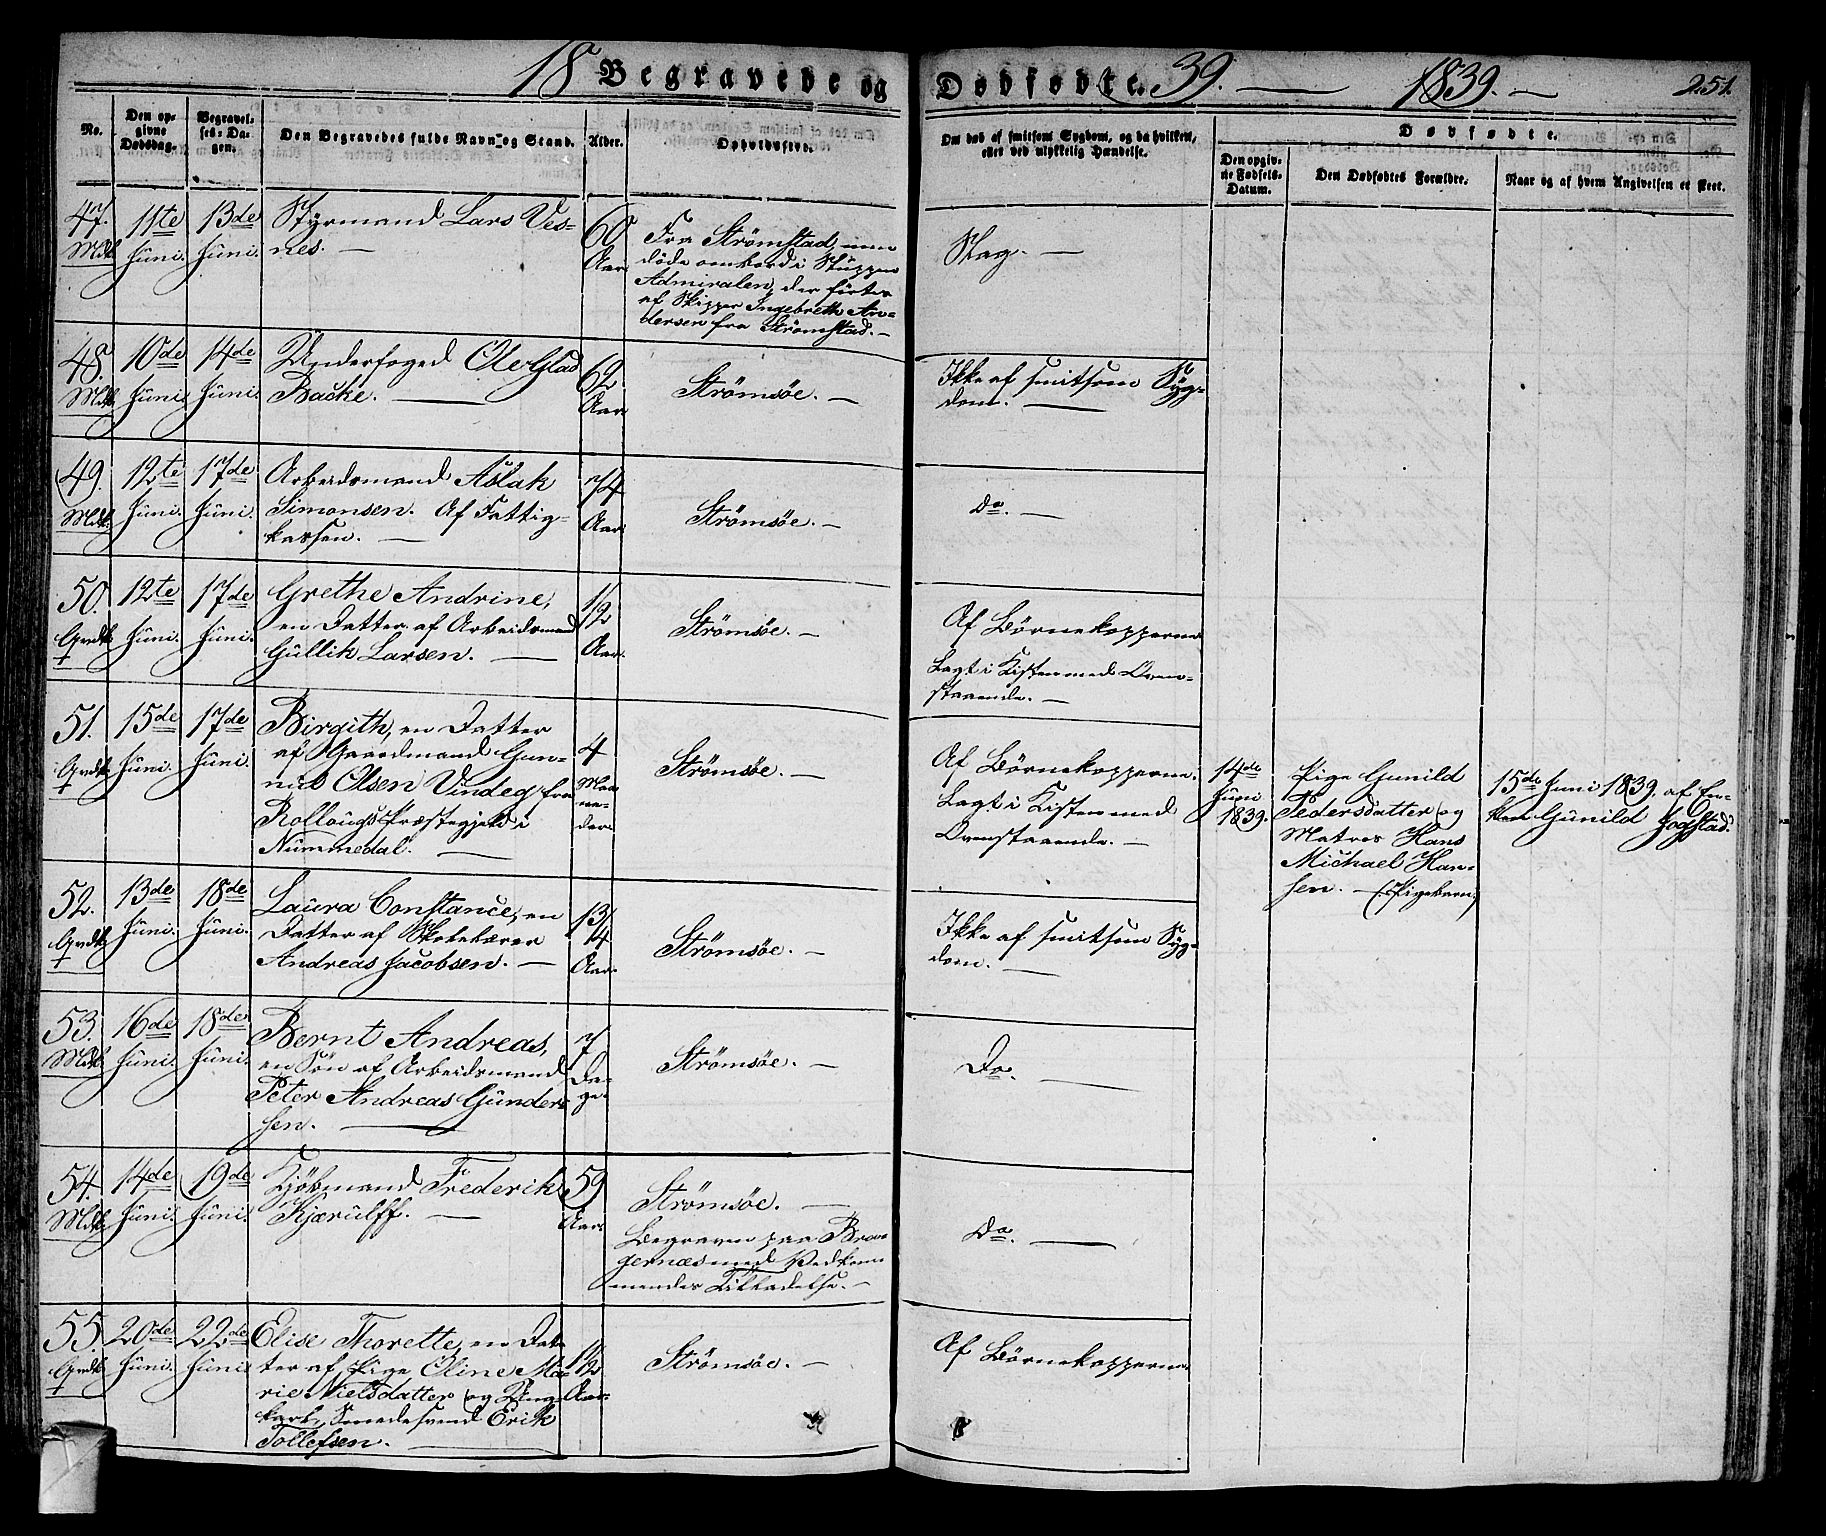 18 Begravede og Dødfødte. 39. 1839. 251.
No.
Den opgivne Dødsdag.
Begravelses-Dagen.
Den Begravedes fulde Navn og Stand.
Alder.
Opholdssted.
Om død af smitsom Sygdom, og da hvilken,
eller ved ulykkelig Hændelse.
Dødfødte.
Den opgivne Fødsels-Datum.
Den Dødfødtes Forældre.
Naar og af hvem Angivelsen er skeet.
47.
Mdk.
11te
Juni.
13de
Juni.
Styrmand Lars Ves-
nes. —
60
Aar.
Fra Strömstad, men
döde ombord i Sluppen
Admiralen, der förtes
af Skipper Ingebreth An-
dersen fra Strömstad. —
Slag. —
48.
Mdk.
10de
Juni.
14de
Juni.
Underfoged Ole Glad
Backe. —
62
Aar.
Strömsöe. —
Ikke af smitsom Syg-
dom. —
49.
Mdk.
12te
Juni.
17de
Juni.
Arbeidsmand Aslak
Simonsen. Af Fattig-
kassen. —
74
Aar.
Strömsöe. —
Do. —
50.
Qvdk.
†
12te
Juni.
17de
Juni.
Grethe Andrine,
en Datter af Arbeidsmand
Gullik Larsen. —
1/2
Aar.
Strömsöe. —
Af Börnekopperne
Lagt i Kisten med Oven-
staaende. —
51.
Qvdk.
†
15de
Juni.
17de
Juni.
Birgith, en Datter
af Gaardmand Gun-
nul Olsen Vindeg fra
Rollougs Præstegjeld i
Nummedal. —
4
Maa-
ne-
der.
Strömsöe. —
Af Börnekopperne.
Lagt i Kisten med
Ovenstaaende. —
14de
Juni
1839.
Pige Gunild
Pedersdatter og
Matros Hans
Michael Han-
sen. — (Pigebarn)
15de Juni 1839. af En-
ken Gunild Godstad.
52.
Qvdk.
†
13de
Juni.
18de
Juni.
Laura Constance, en
Datter af Skolelærer
Andreas Jacobsen. —
13/14
Aar.
Strömsöe. —
Ikke af smitsom Syg-
dom. —
53.
Mdk.
16de
Juni.
18de
Juni.
Bernt Andreas,
en Sön af Arbeidsmand
Peter Andreas Gunder-
sen. —
7
Da-
ge.
Strömsöe. —
Do. —
54.
Mdk.
14de
Juni.
19de
Juni.
Kjöbmand Frederik
Kjærulff. —
59
Aar.
Strömsöe. —
Begraven paa Bra-
gernæs med Vedkom-
mendes Tilladelse. —
Do. —
55.
Qvdk.
†
20de
Juni.
22de
Juni.
Elise Thorette, en Dat-
ter af Pige Oline Ma-
rie Nielsdatter og Ung-
karl, Smedesvend Erik
Tollefsen. —
1/2
Aar.
Strömsöe. —
Af Börnekopperne.